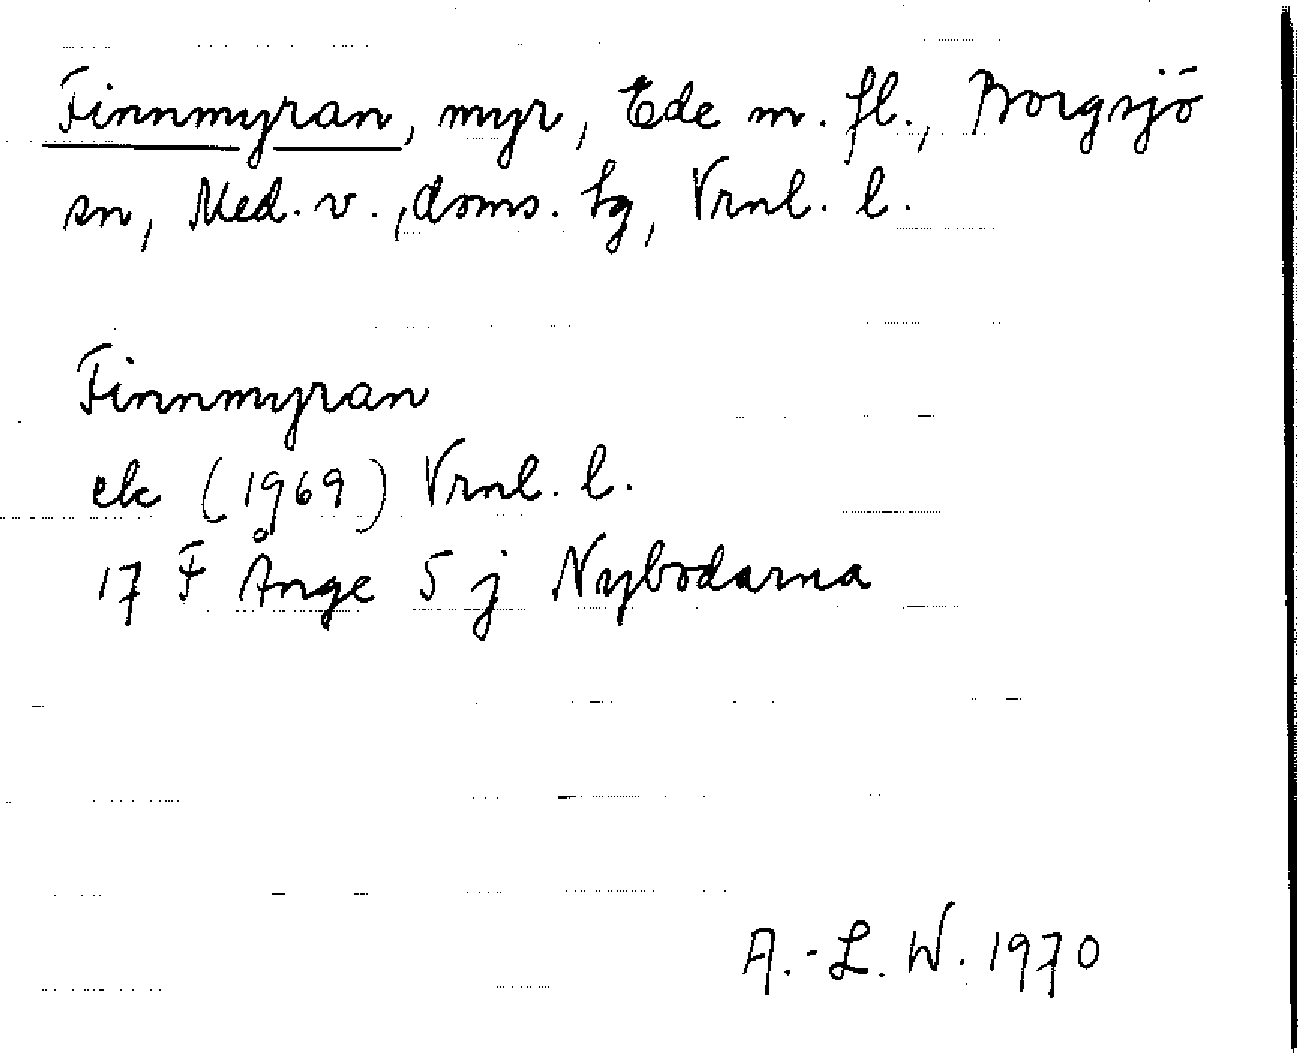 Finnmyran, myr, Ede m. fl., Borgsjö
sn, Med. v., doms. tg, Vrnl. l.
Finnmyran
ek (1969) Vrnl. l.
17 F Ånge 5 j Nybodarna
A.-L. W. 1970